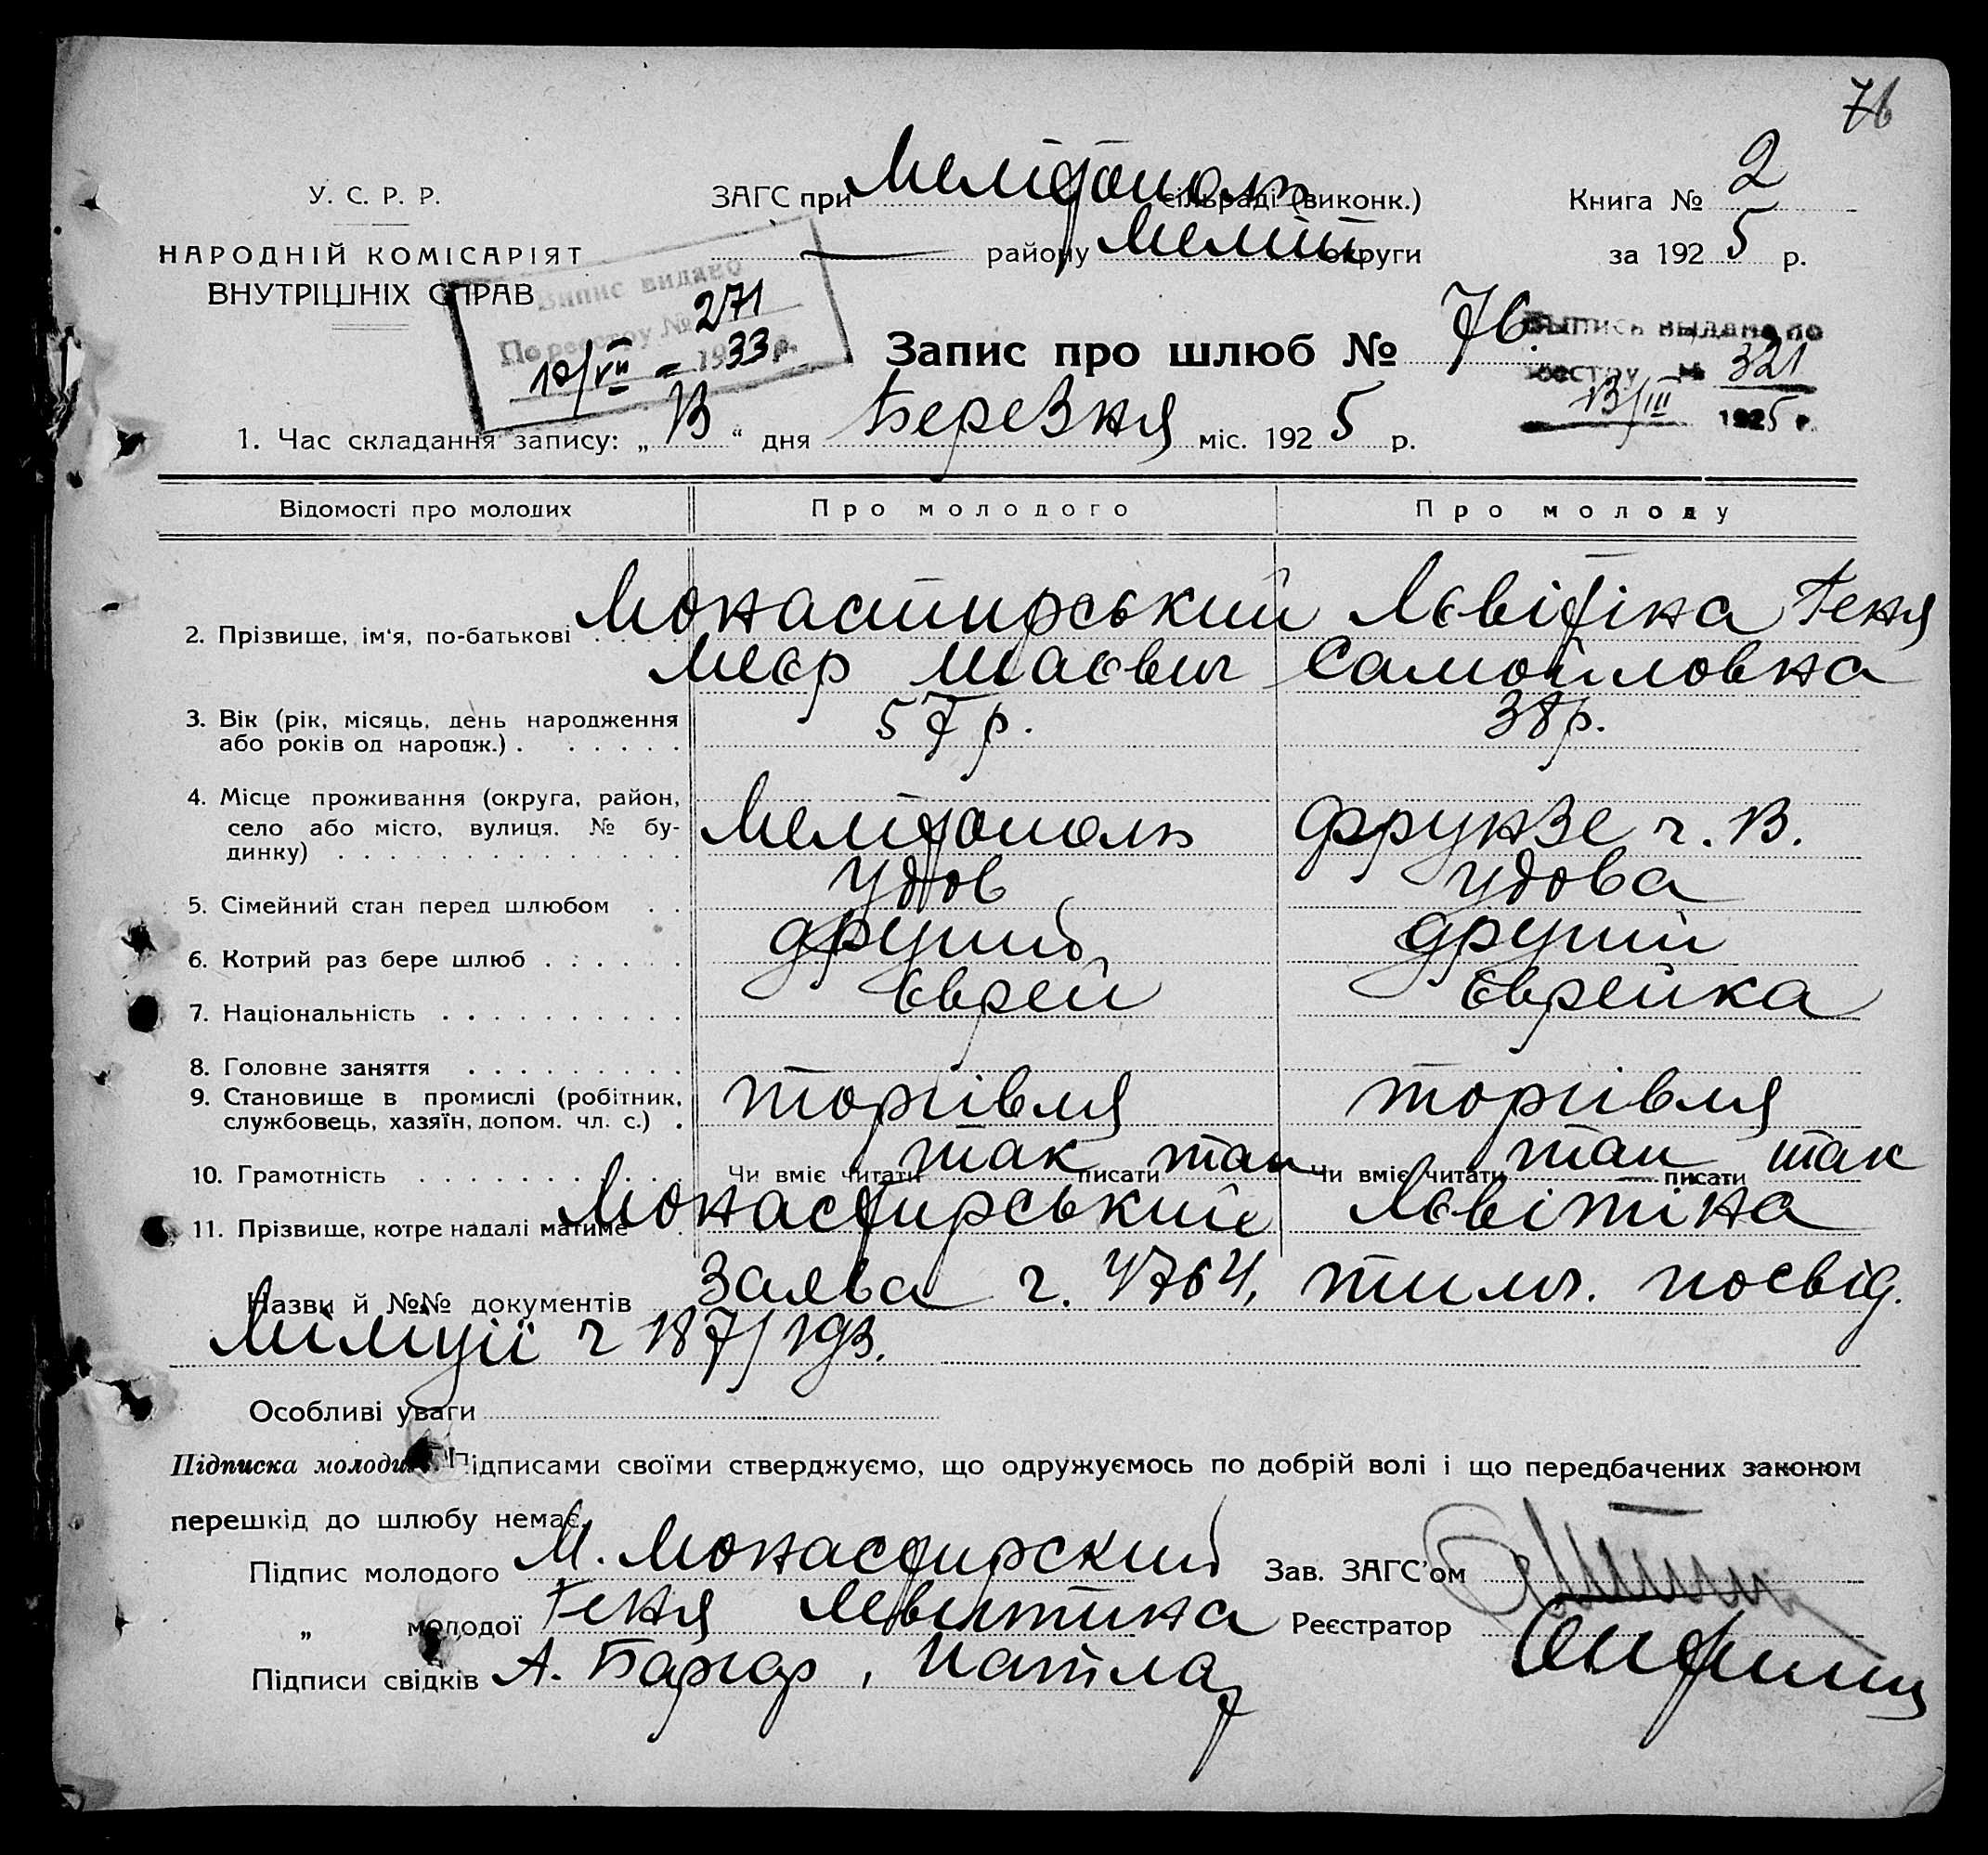 76
У. С. Р. Р.
НАРОДНІЙ КОМІСАРІЯТ
ВНУТРІШНІХ СПРАВ
ЗАГС при Мелітополь сільраді (виконк.)
— району Меліт округи
Книга № 2
за 1925 р.
Випис видано
По реестру № 271
19 33 р.
Запис про шлюб № 76.
Выпись выдана по
реестру № 321
13/III 1925 г.
1. Час складання запису: „13“ дня Березня міс. 1925 р.
Відомості про молодих
Про молодого
Про молоду
2. Прізвище, ім'я, по-батькові
Монастирський
Меєр Шаєвич
Лєвітіна Геня
Самойловна
3. Вік (рік, місяць, день народження
або років од народж.)
57 р.
38 р.
4. Місце проживання (округа, район,
село або місто, вулиця, № бу-
динку)
Мелітополь
Фрунзе ч. 13.
5. Сімейний стан перед шлюбом
удов
удова
6. Котрий раз бере шлюб
другий
другий
7. Національність
Єврей
Єврейка
8. Головне заняття
9. Становище в промислі (робітник,
службовець, хазяїн, допом. чл. с.)
торгівля
торгівля
10. Грамотність
Чи вміє читати так писати так
Чи вміє читати так писати так
11. Прізвище, котре надалі матиме
Монастирський
Лєвітіна
Назви й №№ документів Заява ч. 4764, тимч. посвід.
Міліції ч 187/193.
Особливі уваги
Підписка молодих. Підписами своїми стверджуємо, що одружуємось по добрій волі і що передбачених законом
перешкід до шлюбу немає.
Підпис молодого М. Монастирский
Зав. ЗАГС'ом
„ молодої Геня Левитина
Реєстратор
Підписи свідків А.